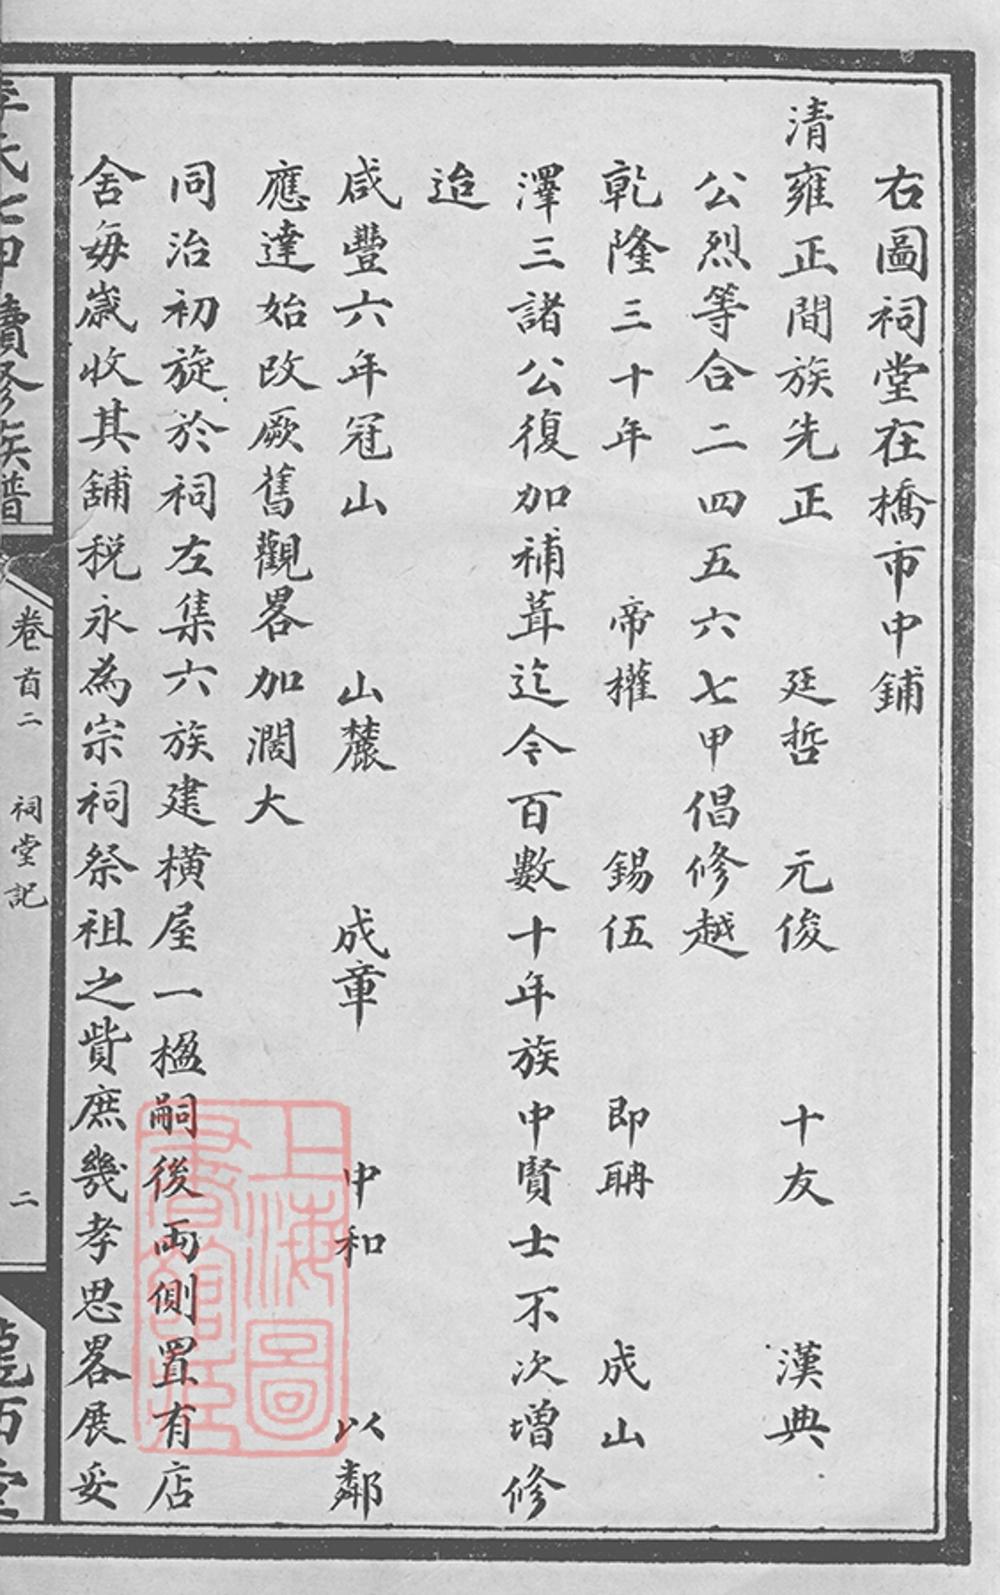 右圖祠堂在橋市中鋪
清雍正間族先正 廷哲 元俊 十友 漢典
公烈等合二四五六七甲倡修越
乾隆三十年 帝權 錫伍 即聃 成山
澤三諸公復加補葺迄今百數十年族中賢士不次增修
迨
咸豐六年冠山 山麓 成章 中和 以鄰
應達始改厥舊觀畧加濶大
同治初旋於祠左集六族建橫屋一楹嗣後両側置有店
舍每歲收其舖税永為宗祠祭祖之貲庶幾孝思畧展妥
李氏七甲續修族譜
卷首二 祠堂記
二
隴西堂
上海圖書館藏